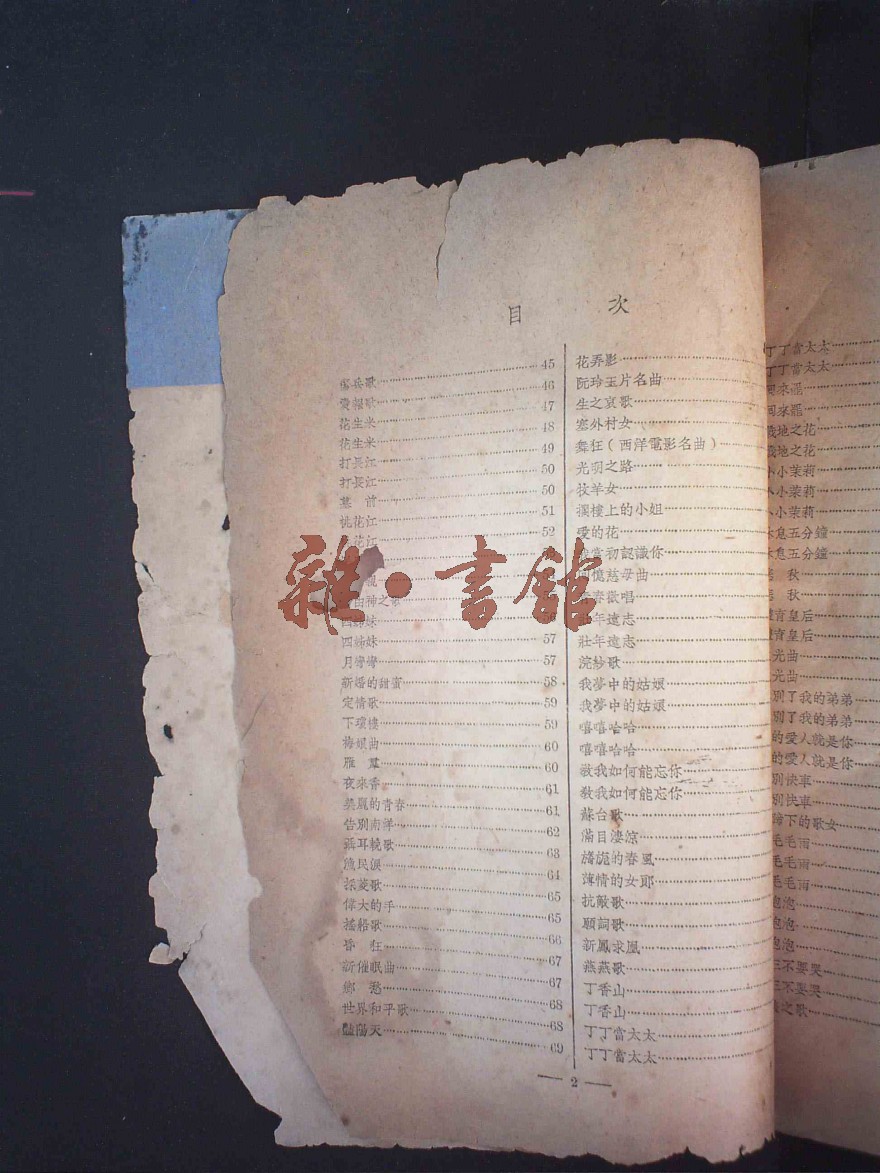 目 次
歌 45
愛報歌 46
花生米 47
花生米 48
打長江 49
打長江 50
墓 前 50
桃花江 51
花江 52
四姊妹 57
月彎彎 57
新婚的甜蜜 58
定情歌 59
下瓊樓 59
梅娘曲 60
雁 羣 60
夜來香 61
美麗的青春 61
告別南洋 62
聶耳輓歌 63
漁民淚 64
採菱歌 65
偉大的手 65
搖船歌 66
昏 狂 67
新催眠曲 67
鄉 愁 68
世界和平歌 68
豔陽天 69
花弄影
阮玲玉片名曲
生之哀歌
塞外村女
舞狂(西洋電影名曲)
光明之路
牧羊女
擺樓上的小姐
愛的花
當初認識你
慈母曲
歡唱
壯年遠志
壯年遠志
浣紗歌
我夢中的姑娘
我夢中的姑娘
嘻嘻哈哈
嘻嘻哈哈
敎我如何能忘你
敎我如何能忘你
蘇台歌
滿目淒凉
旖旎的春風
薄情的女郞
抗敵歌
願詞歌
新鳳求凰
燕燕歌
丁香山
丁香山
丁丁當太太
丁丁當太太
— 2 —
丁丁當太太
丁丁當太太
囘來罷
囘來罷
地之花
地之花
小小茉莉
小小茉莉
小小茉莉
休息五分鐘
休息五分鐘
秋
秋
育皇后
育皇后
光曲
光曲
別了我的弟弟
別了我的弟弟
的愛人就是你
的愛人就是你
別快車
別快車
蹄下的歌女
毛毛雨
毛毛雨
毛毛雨
泡泡
泡泡
泡泡
三不要哭
三不要哭
之歌
雜·書館